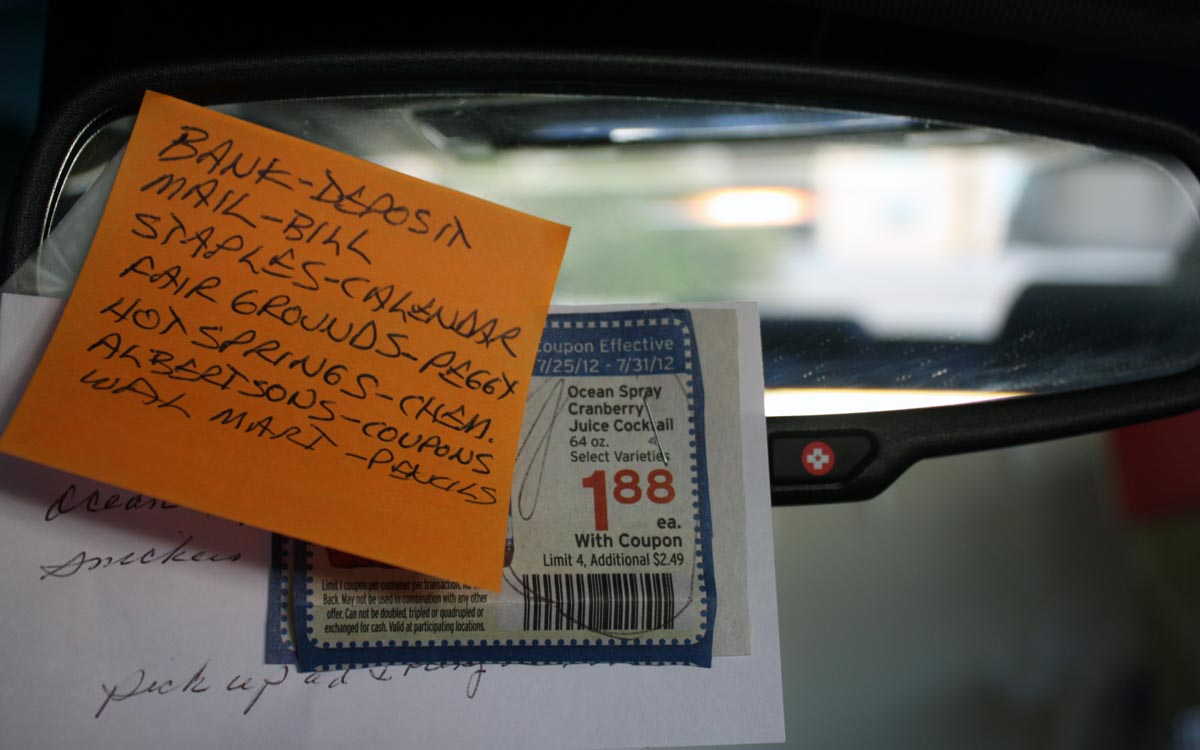 BANK-DEPOSIT
MAIL-BILL
STAPLES-CALENDAR
FAIR GROUNDS-PEGGY
HOT SPRINGS-CHEM.
ALBERTSONS-COUPONS
WAL MART-PENCILS
Coupon Effective
7/25/12 - 7/31/12
Ocean Spray
Cranberry
Juice Cocktail
64 oz.
Select Varieties
188
ea.
With Coupon
Limit 4, Additional $2.49
Limit 1 coupon per customer per transaction.
Back. May not be used in combination with any other
offer. Can not be doubled, tripled or quadrupled or
exchanged for cash. Valid at participating locations.
Ocean
Snickers
pick up ad